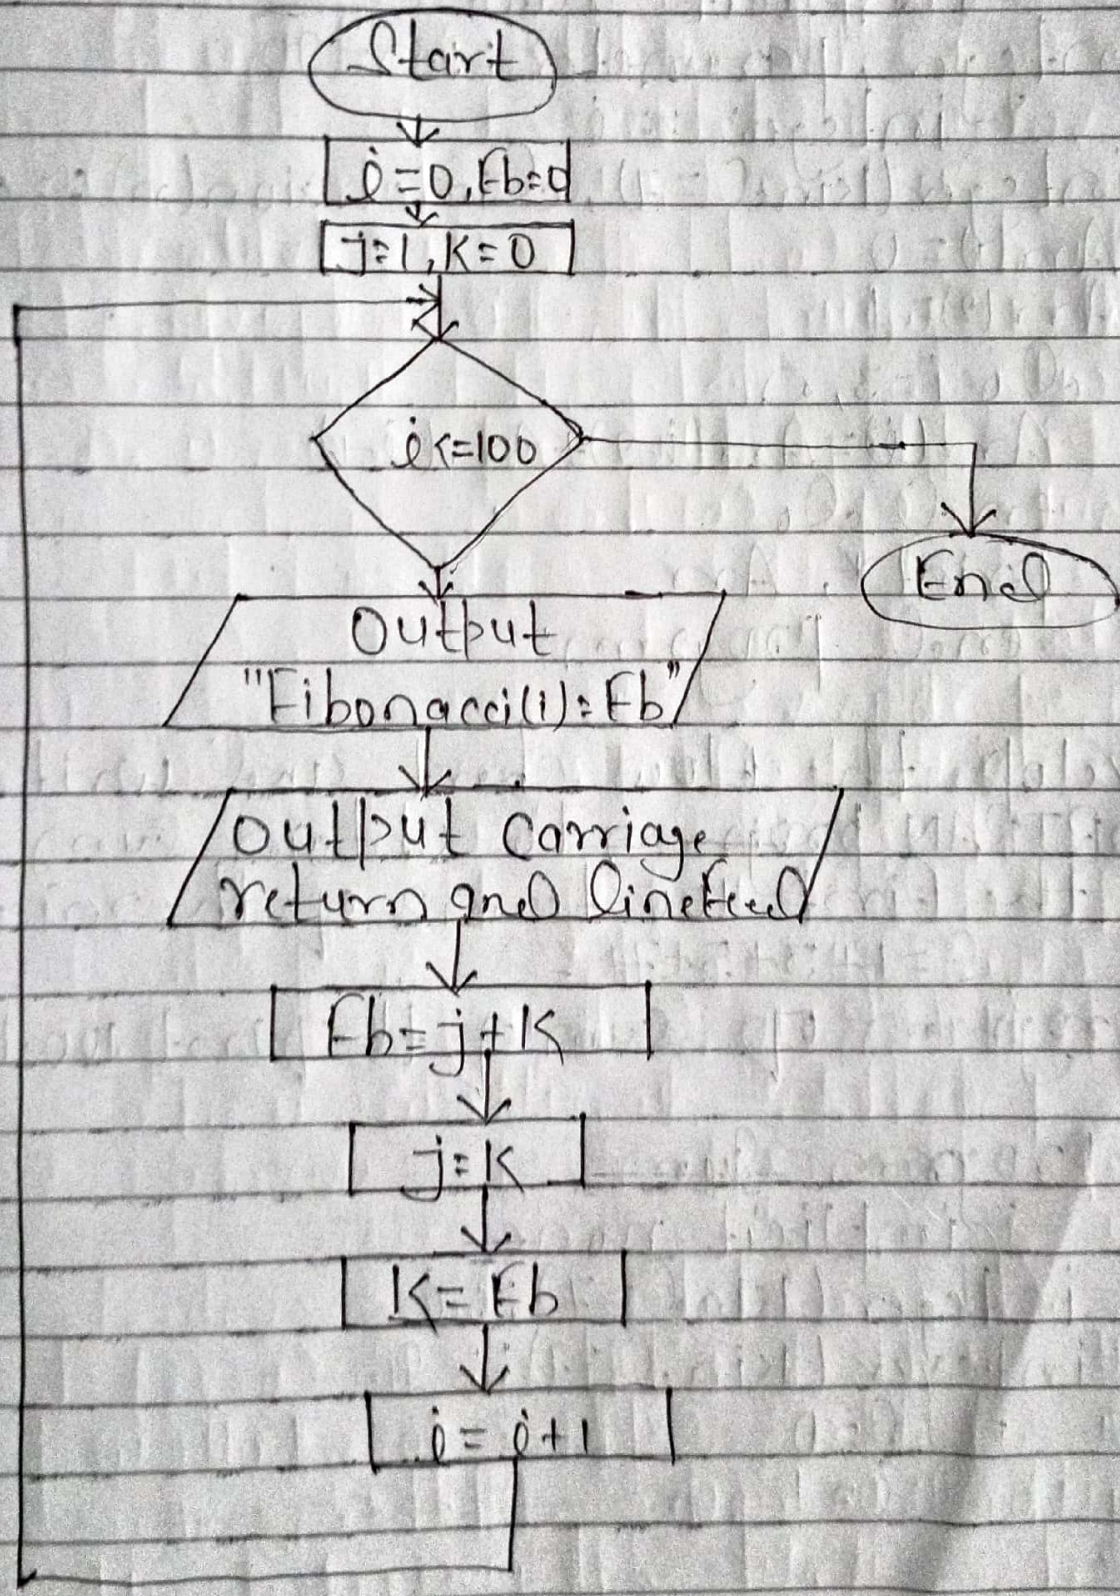 Start
i=0, Fb=0
j=1, K=0
i<=100
End
Output
"Fibonacci(i)=Fb"
Output Carriage
return and linefeed
Fb=j+K
j=K
K=Fb
i=i+1